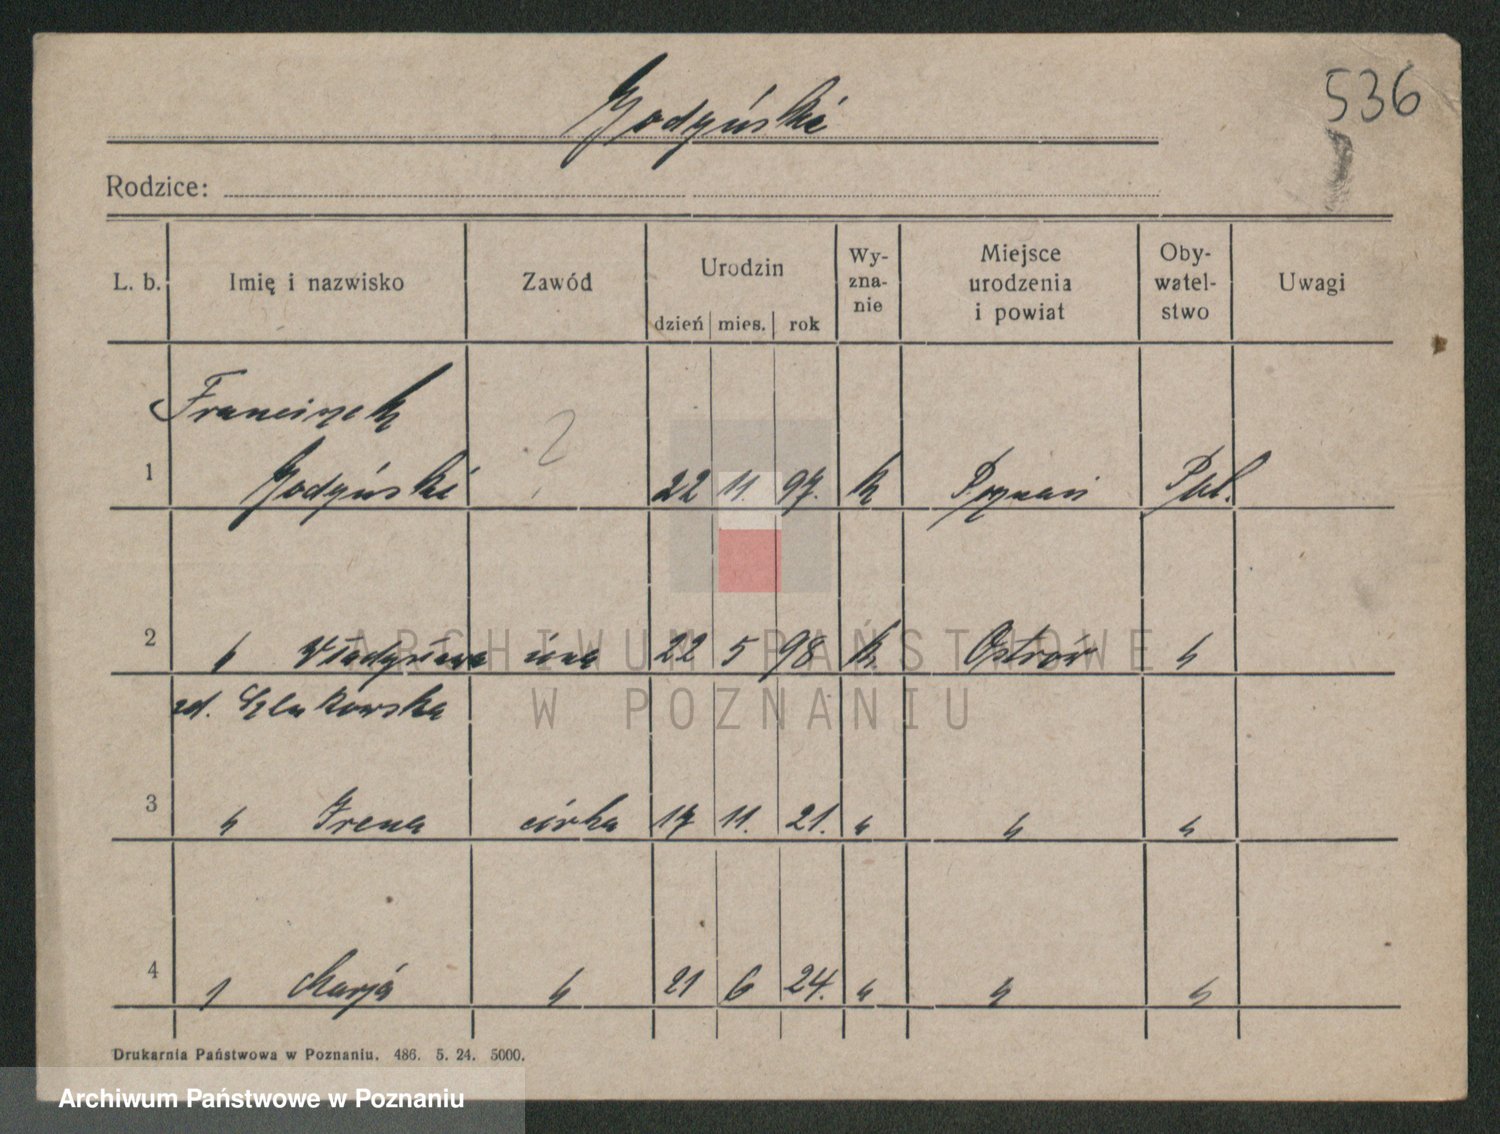 Godyński
536
Rodzice:
L. b. Imię i nazwisko Zawód Urodzin Wy-zna-nie Miejsce urodzenia i powiat Oby-watel-stwo Uwagi
dzień mies. rok
Franciszek
1 Godyński 22 11. 97. k Poznań Pol.
2 " Władysława żona 22 5 98 k Ostrów "
zd.
3 " Irena córka 17 11. 21. " " "
4 " Marja " 21 6 24. " " "
Drukarnia Państwowa w Poznaniu. 486. 5. 24. 5000.
ARCHIWUM PAŃSTWOWE
W POZNANIU
Archiwum Państwowe w Poznaniu